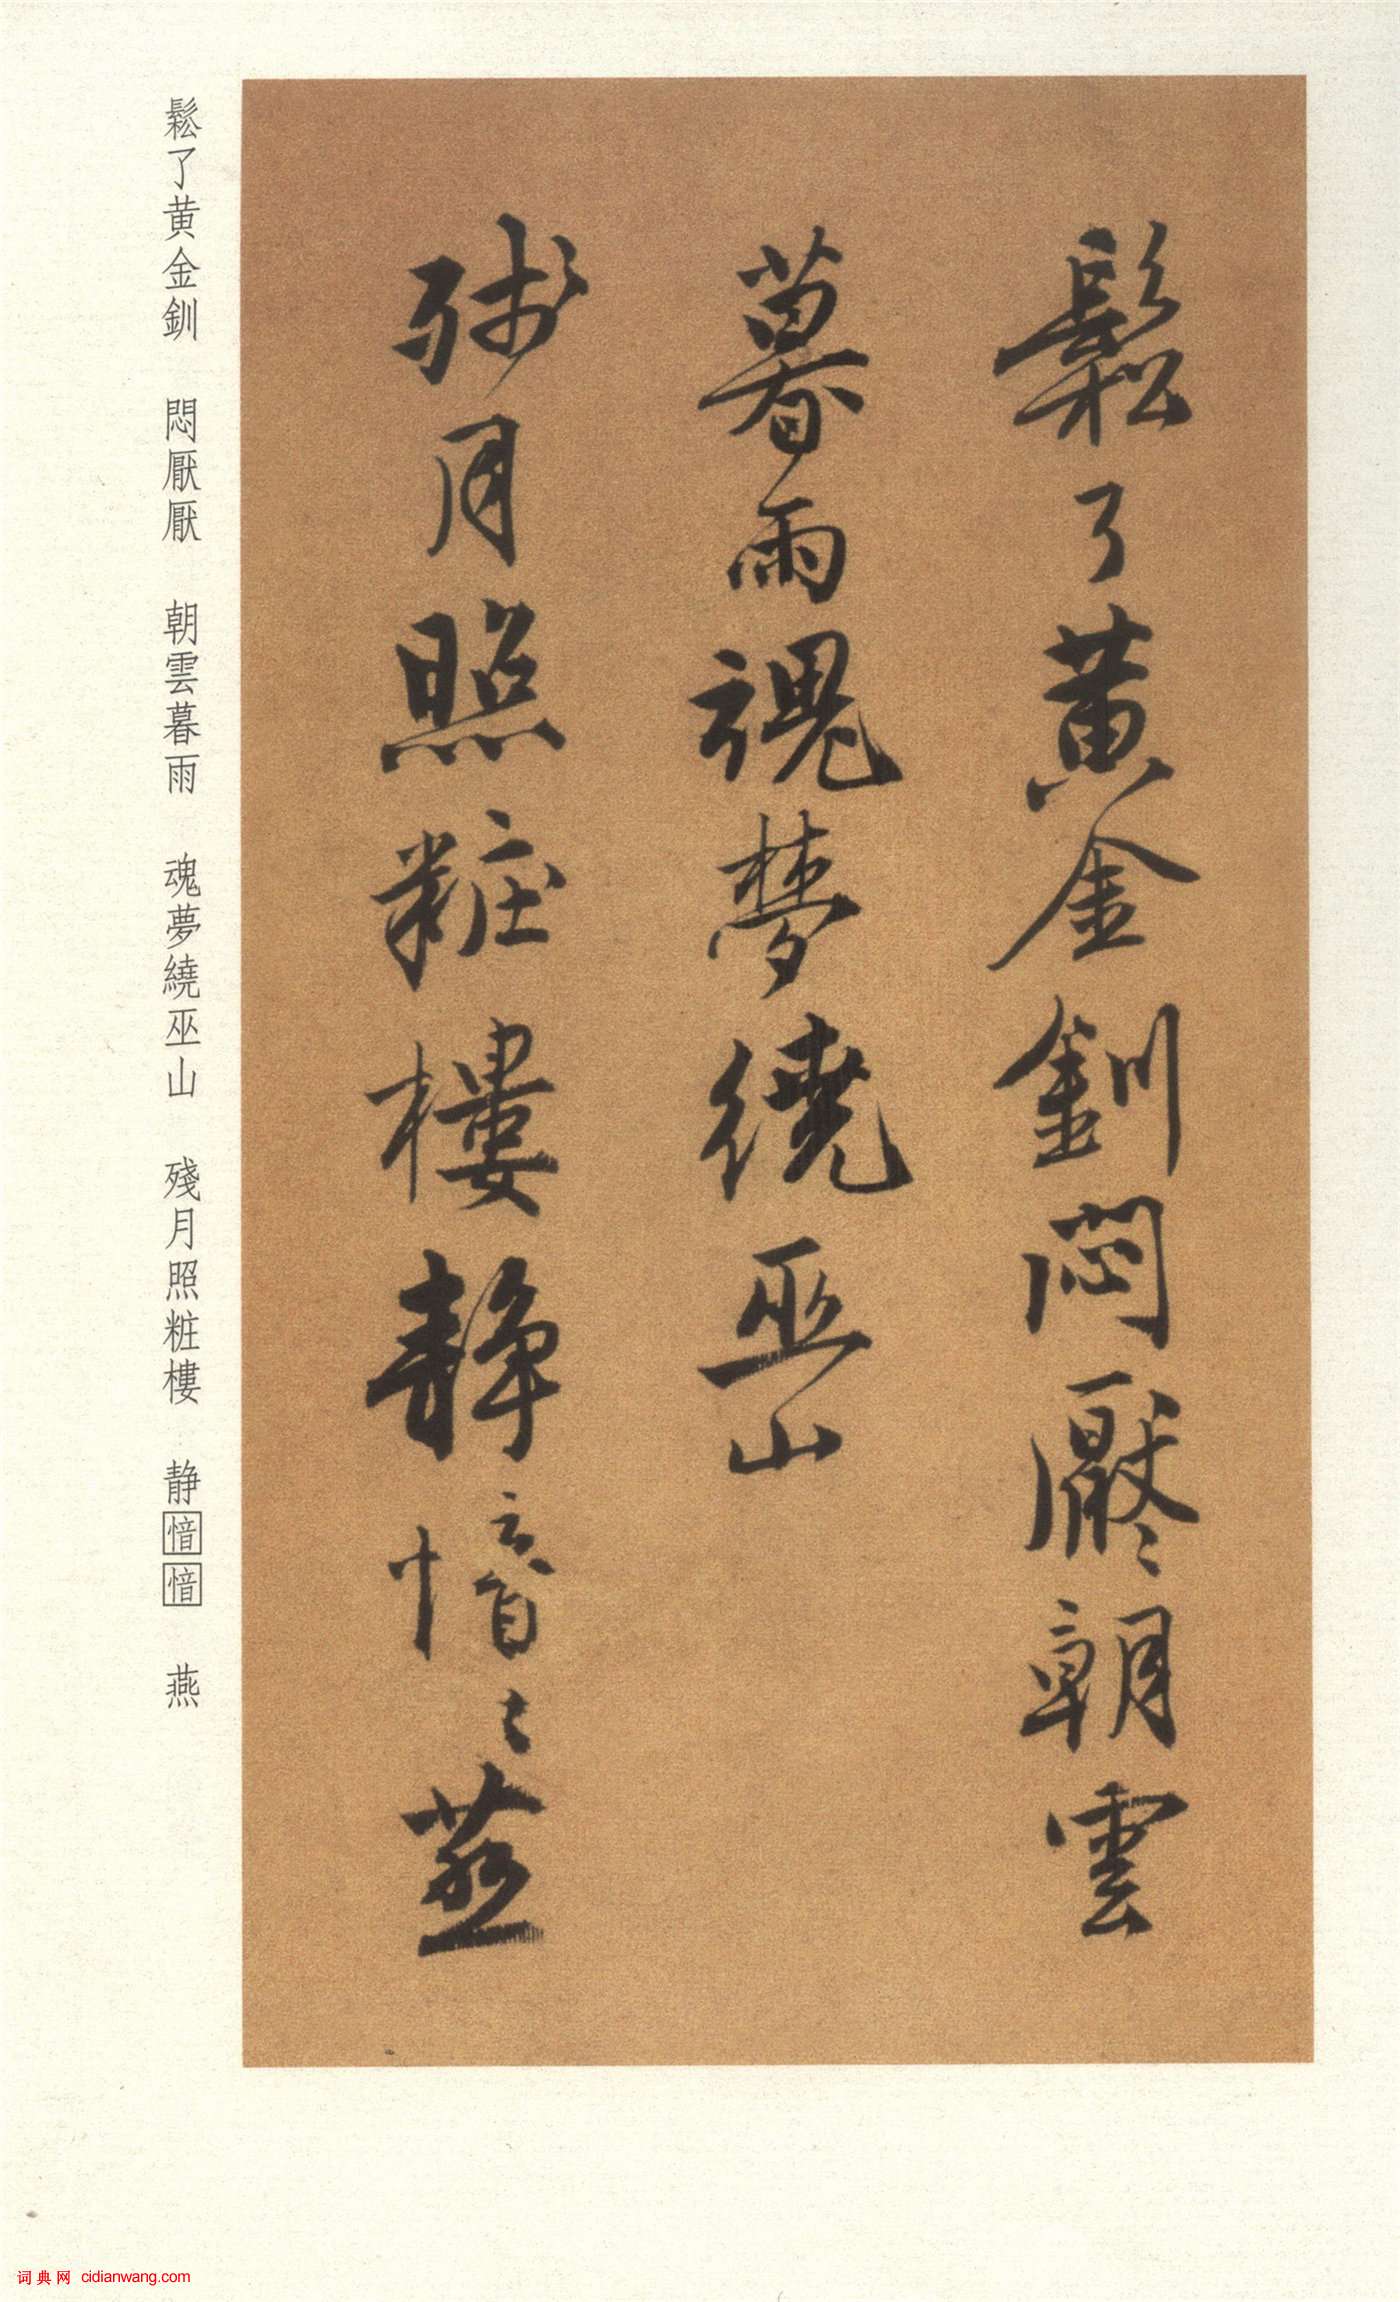 鬆了黃金釧悶厭〻朝雲
暮雨魂夢繞巫山
殘月照粧樓靜愔〻燕
鬆了黄金釧　悶厭厭　朝雲暮雨　魂夢繞巫山　殘月照粧樓　静愔愔　燕
词典网 cidianwang.com